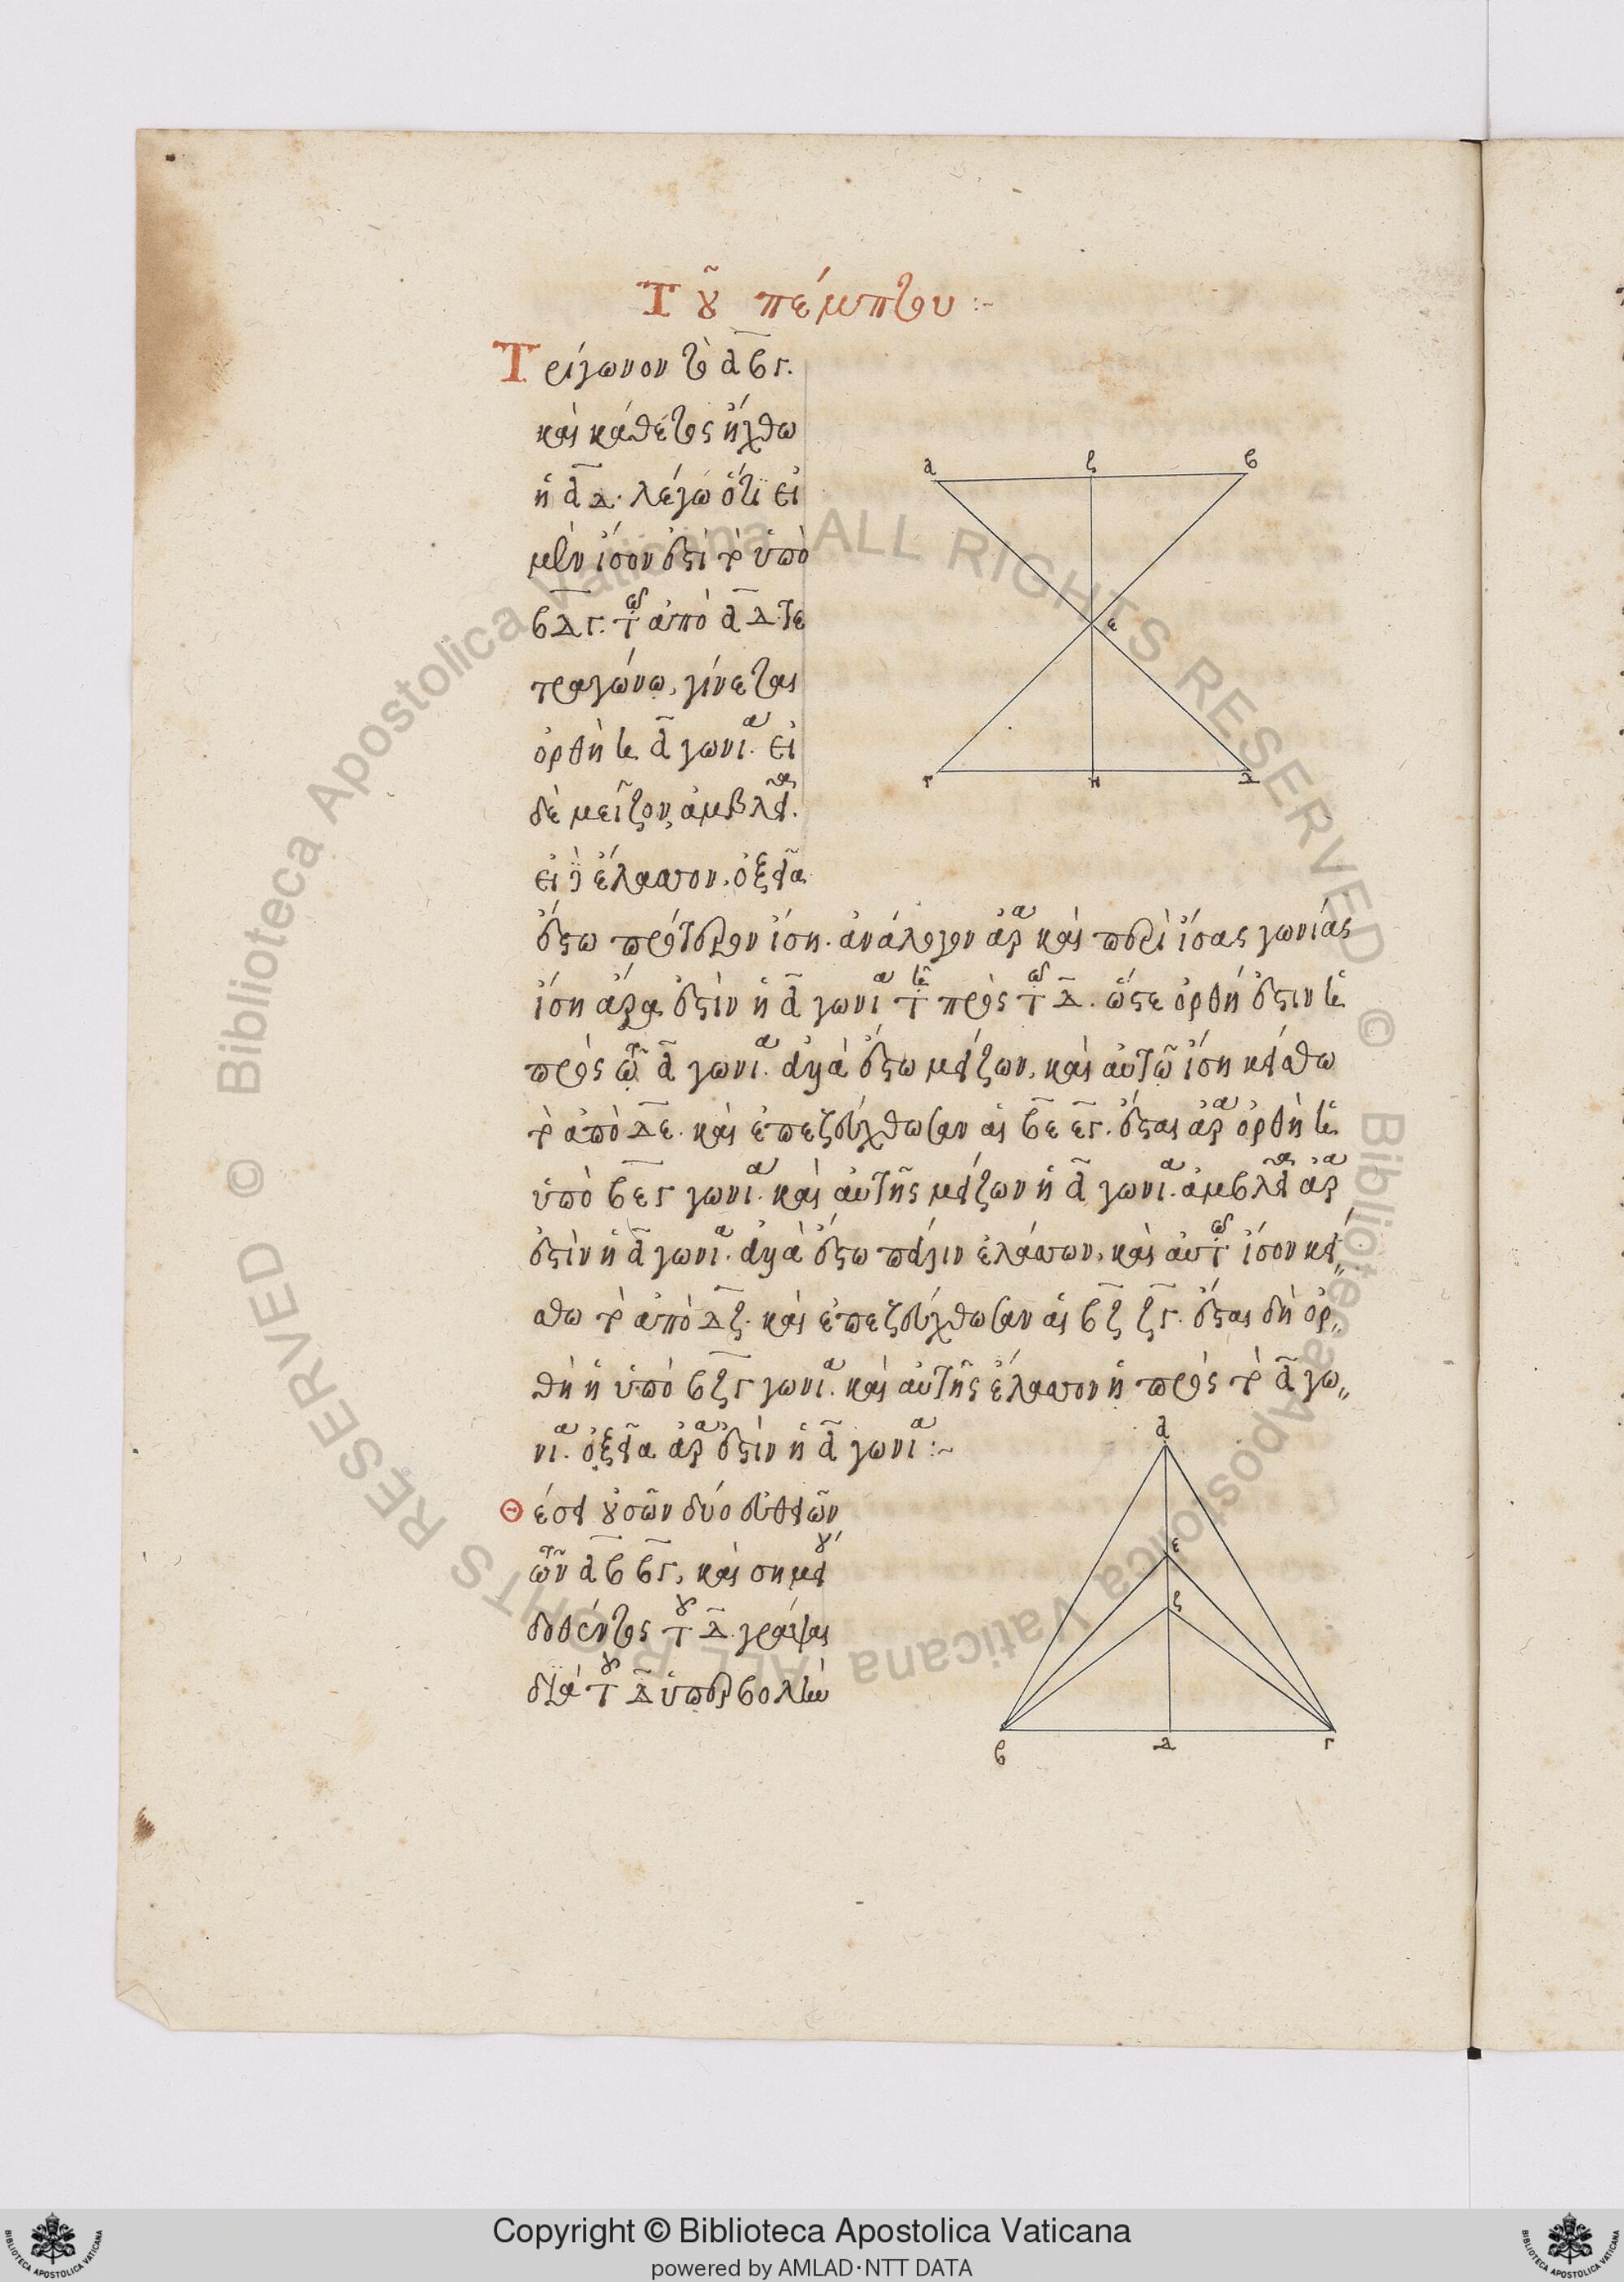 Τοῦ πέμπτου :~
Τρίγωνον τὸ αβγ.
καὶ κάθετος ἤχθω
ἡ αδ. λέγω ὅτι εἰ
μὲν ἴσον ἐστὶ τὸ ὑπὸ
βδγ. τῶ ἀπὸ αδ τε
τραγώνω, γίνεται
ὀρθὴ ἡ α γωνία. εἰ
δὲ μεῖζον, ἀμβλεῖα.
εἰ δὲ ἔλαττον, ὀξεῖα
ἔστω πρότερον ἴση. ἀνάλογον ἄρα καὶ περὶ ἴσας γωνίας
ἴση ἄρα ἐστὶν ἡ α γωνία τῆ πρὸς τῶ δ. ὥστε ὀρθή ἐστιν ἡ
πρὸς τῶ α γωνία. ἀλλὰ ἔστω μείζων, καὶ αὐτῶ ἴση κείσθω
τὸ ἀπὸ δε. καὶ ἐπεζεύχθωσαν αἱ βε εγ. ἔσται ἄρα ὀρθὴ ἡ
ὑπὸ βεγ γωνία. καὶ αὐτῆς μείζων ἡ α γωνία. ἀμβλεῖα ἄρα
ἐστὶν ἡ α γωνία. ἀλλὰ ἔστω πάλιν ἐλάττων, καὶ αὐτῶ ἴσον κεί
σθω τὸ ἀπὸ δζ. καὶ ἐπεζεύχθωσαν αἱ βζ ζγ. ἔσται δὴ ὀρ
θὴ ἡ ὑπὸ βζγ γωνία. καὶ αὐτῆς ἔλαττον ἡ πρὸς τὸ α γω
νία. ὀξεῖα ἄρα ἐστὶν ἡ α γωνία :~
Θέσει οὐσῶν δύο εὐθειῶν
τῶν αβ βγ, καὶ σημείου
δοθέντος τοῦ δ. γράψαι
διὰ τοῦ δ ὑπερβολὴν
α ζ β
ε
γ η δ
α
ε
ζ
β δ γ
Copyright © Biblioteca Apostolica Vaticana
powered by AMLAD·NTT DATA
© Biblioteca Apostolica Vaticana ALL RIGHTS RESERVED © Biblioteca Apostolica Vaticana ALL RIGHTS RESERVED
BIBLIOTECA APOSTOLICA VATICANA
BIBLIOTECA APOSTOLICA VATICANA